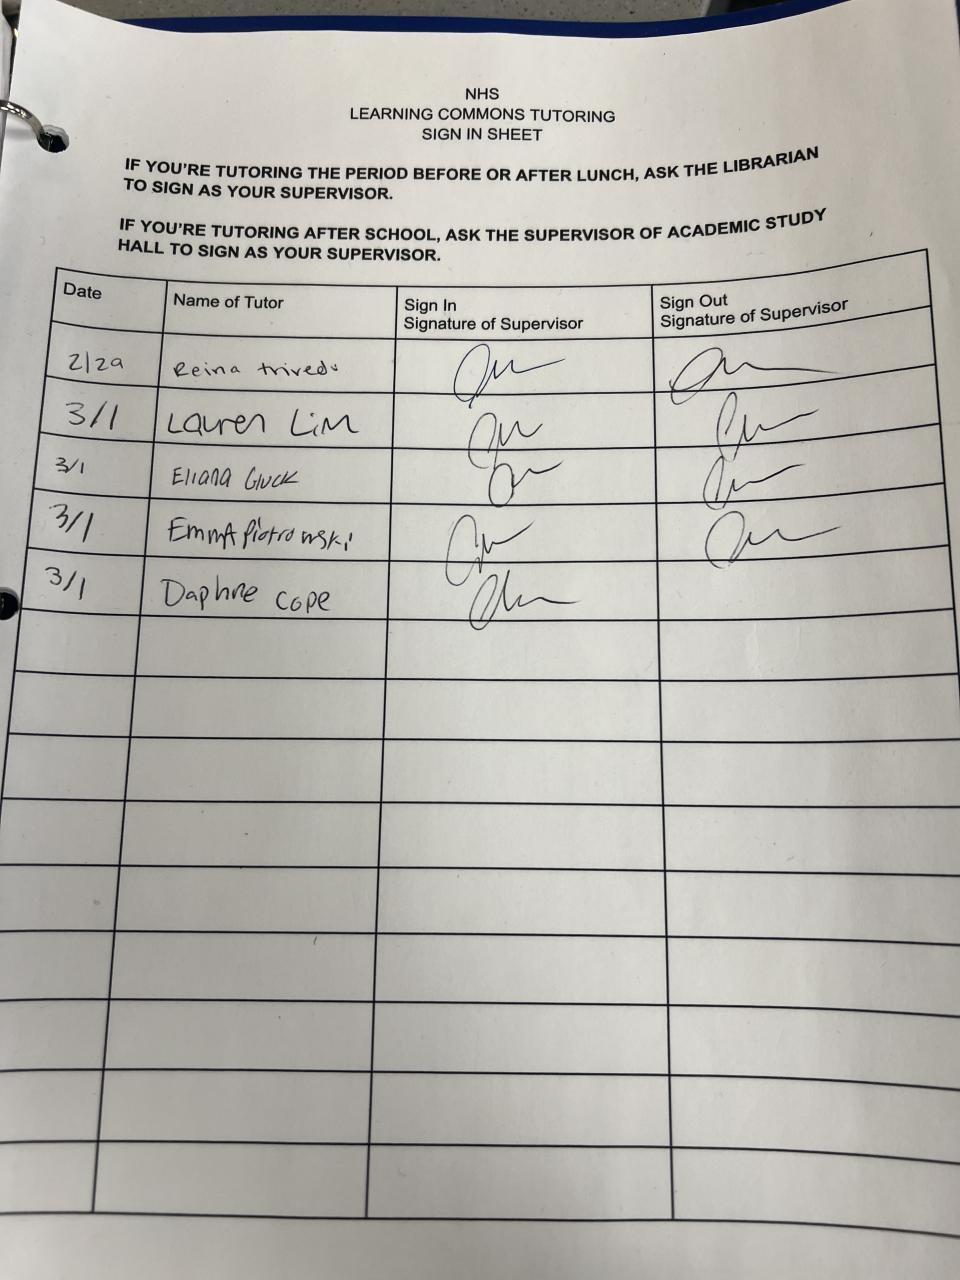 NHS
LEARNING COMMONS TUTORING
SIGN IN SHEET
IF YOU'RE TUTORING THE PERIOD BEFORE OR AFTER LUNCH, ASK THE LIBRARIAN
TO SIGN AS YOUR SUPERVISOR.
IF YOU'RE TUTORING AFTER SCHOOL, ASK THE SUPERVISOR OF ACADEMIC STUDY
HALL TO SIGN AS YOUR SUPERVISOR.
Date Name of Tutor Sign In Sign Out
Signature of Supervisor Signature of Supervisor
2/29 Reina trivedi
3/1 Lauren Lim
3/1 Eliana Gluck
3/1 Emma Piotrowski
3/1 Daphne Cope